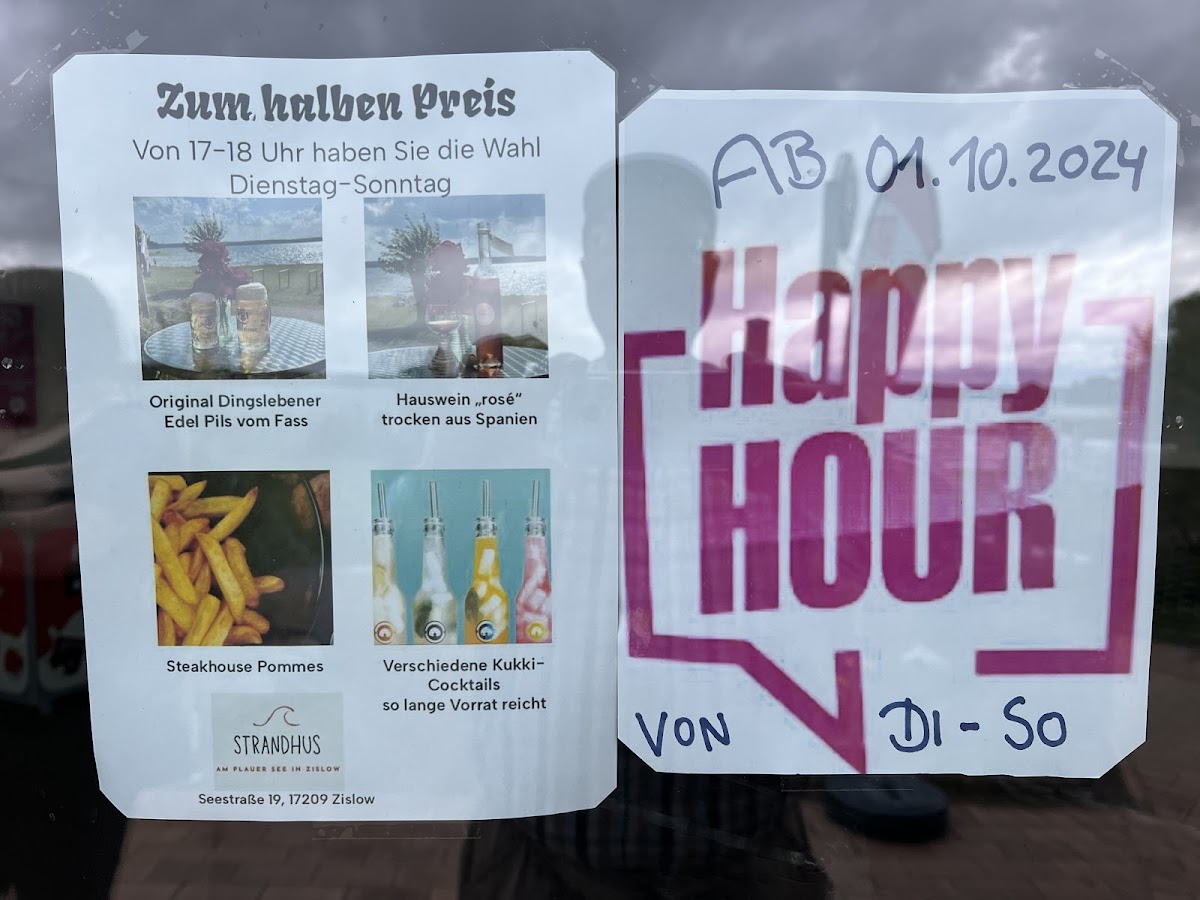 Zum halben Preis
Von 17-18 Uhr haben Sie die Wahl
Dienstag-Sonntag
Original Dingslebener
Edel Pils vom Fass
Hauswein „rosé“
trocken aus Spanien
Steakhouse Pommes
Verschiedene Kukki-
Cocktails
so lange Vorrat reicht
STRANDHUS
AM PLAUER SEE IN ZISLOW
Seestraße 19, 17209 Zislow
AB 01.10.2024
Happy
HOUR
VON DI - SO